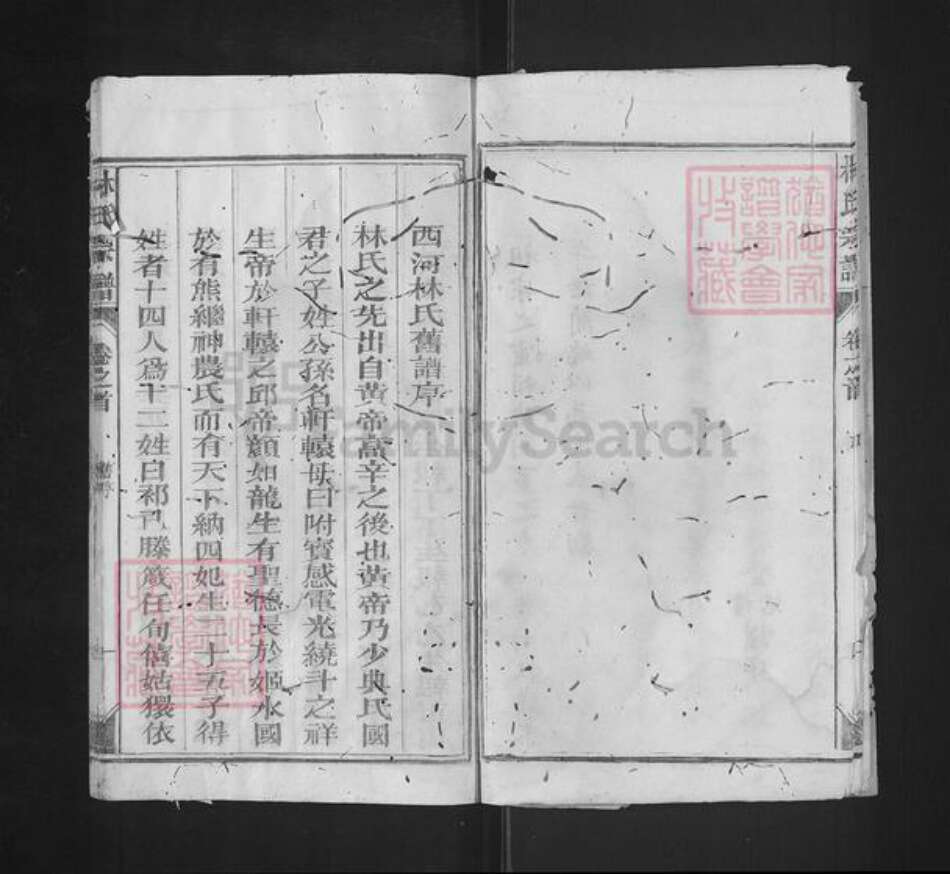 林氏宗譜
卷之首
西河林氏舊譜序
林氏之先出自黃帝高辛之後也黃帝乃少典氏國
君之子姓公孫名軒轅母曰附寳感電光繞斗之祥
生帝於軒轅之邱帝顏如龍生有聖德長於姬水國
於有熊繼神農氏而有天下納四妃生二十五子得
姓者十四人為十二姓曰祁己滕箴任旬僖姞猥依
林氏宗譜
卷之首
舊序
FamilySearch
譜學會
收藏